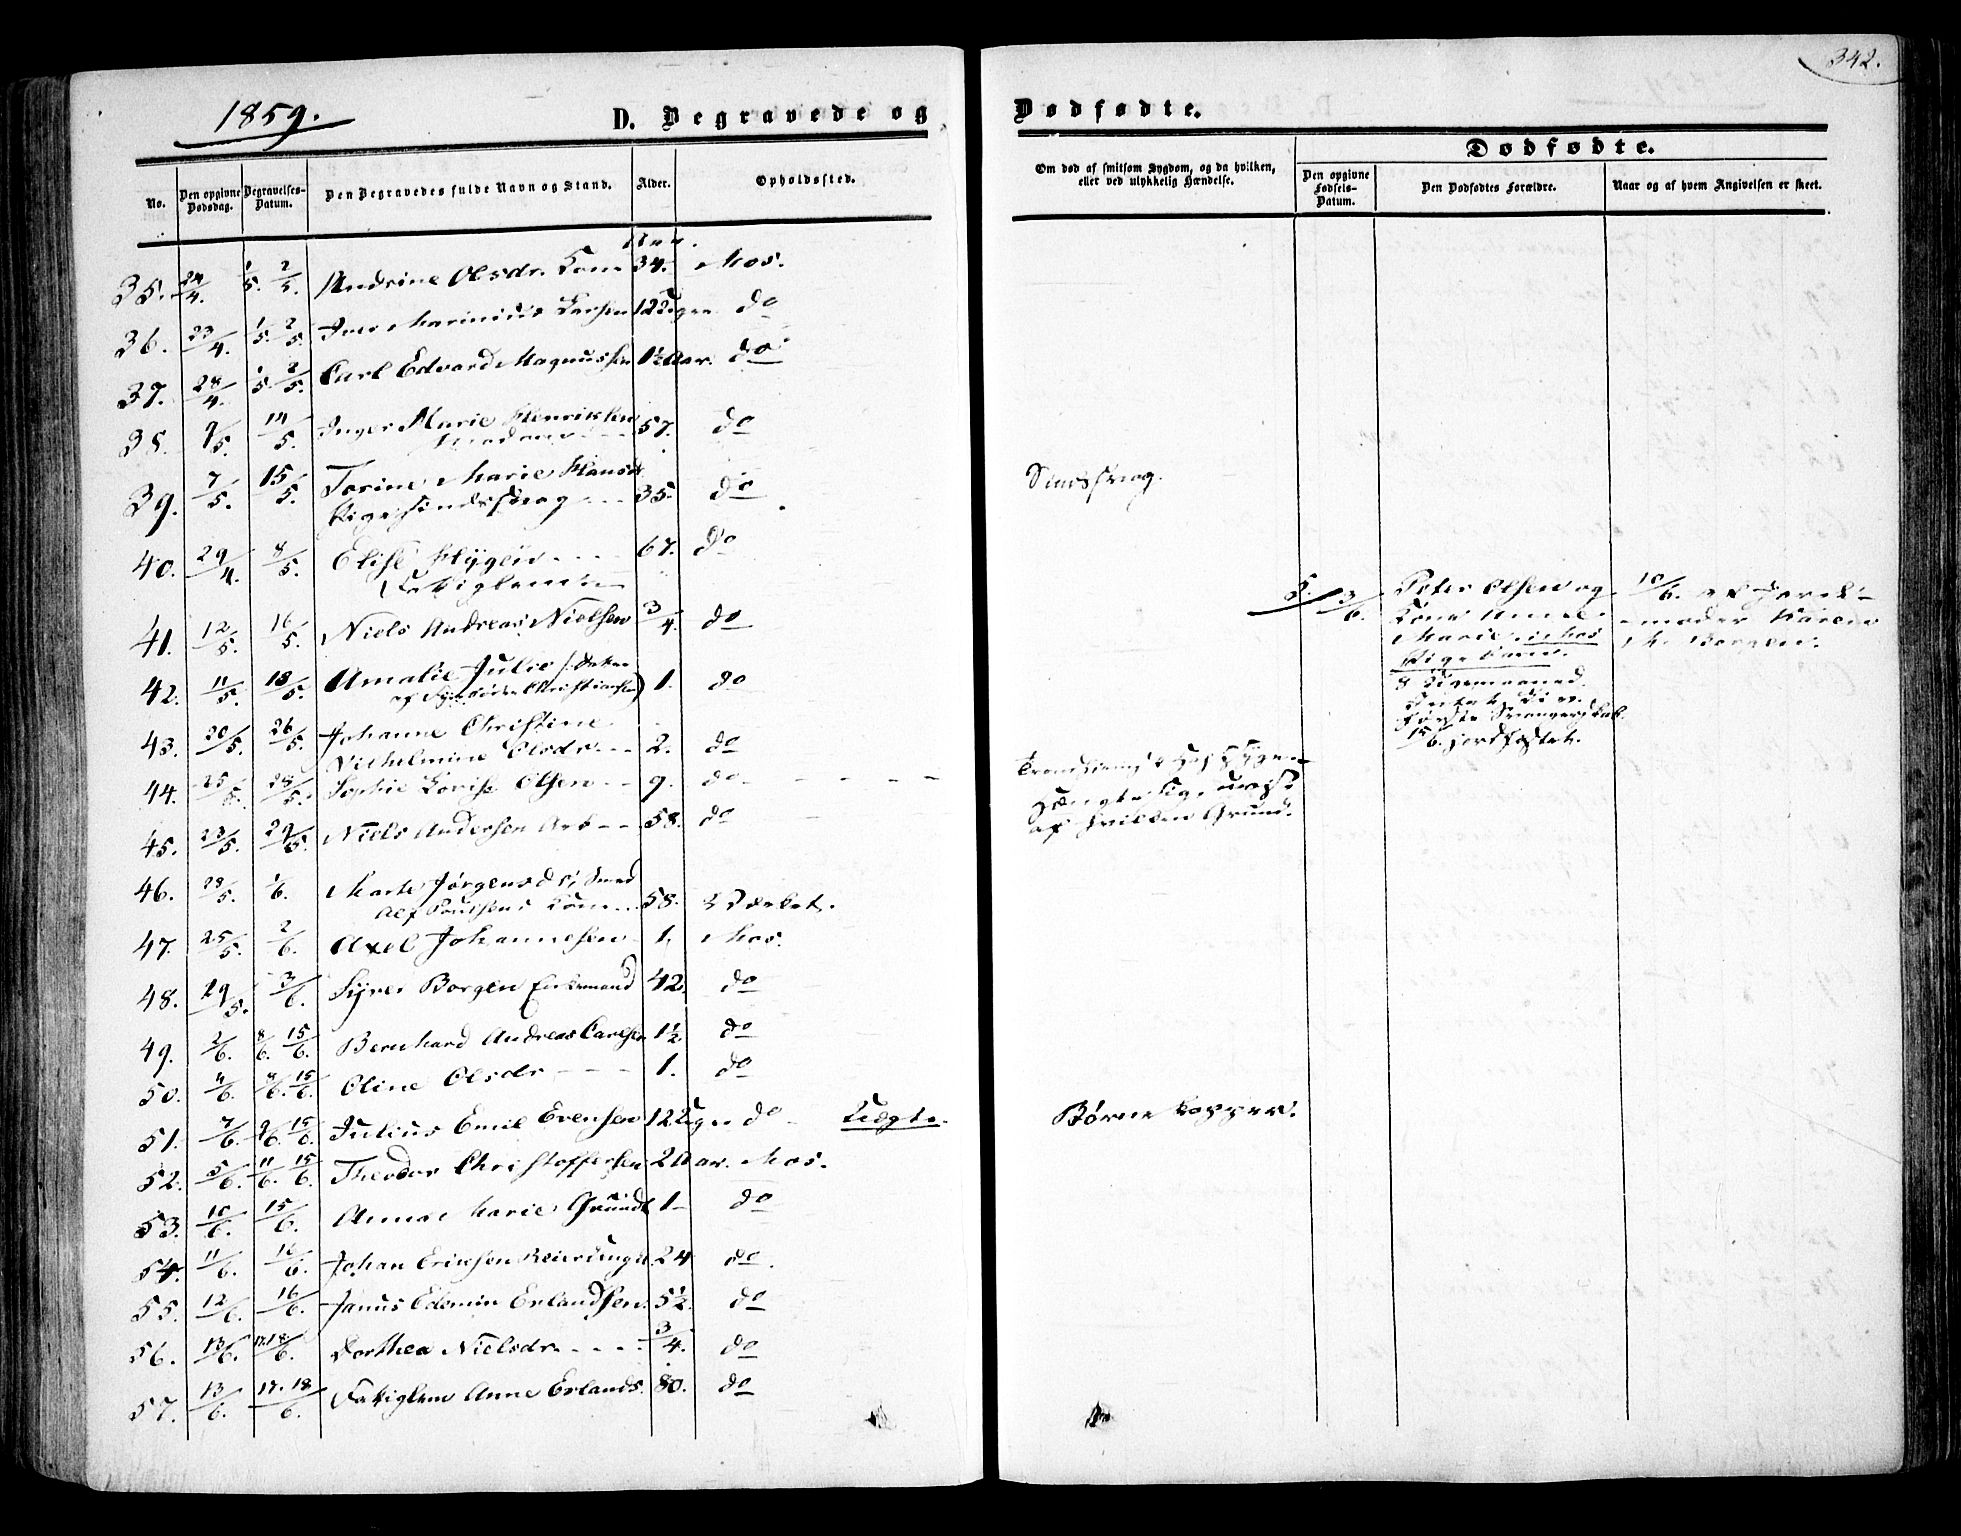 342.
1859.
D. Begravede og
Dødfødte.
No.
Den opgivne Dødsdag.
Begravelses-Datum.
Den Begravedes fulde Navn og Stand.
Alder.
Opholdssted.
Om død af smitsom Sygdom, og da hvilken,
eller ved ulykkelig Hændelse.
Dødfødte.
Den opgivne Fødsels-Datum.
Den Dødfødtes Forældre.
Naar og af hvem Angivelsen er skeet.
Aar.
35. 24/4. 1/5. 2/5. Andrine Olsdr. Kone 34. Mos.
36. 23/4. 1/5. 2/5. Iver Marinius Larsen 12 Uger do
37. 28/4. 1/5. 2/5. Carl Edvard Magnussen 1½ Aar. do
38. 9/5. 14/5. Inger Marie Henriksen
Madame 57. do
39. 7/5. 15/5. Torine Marie Hansd.
Pige sindssvag 35. do Sindssvag.
40. 29/4. 8/5. Elise Hygen 67. do
Fattiglem
41. 12/5. 16/5. Niels Andreas Nielsen 3/4. do
42. 11/5. 18/5. Amalie Julie
Christiansen) 1. do
43. 20/5. 26/5. Johanne Christine
Vilhelmine Olsdr. 2. do
44. 25/5. 28/5. Sophie Lovise Olsen 9. do
45. 23/5. 29/5. Niels Andersen Arb 58. do
af hvilken Grund.
46. 28/5. 1/6. Marte Jørgensdr, Smed
Alf Poulsens Kone 58. Værket.
47. 25/5. 2/6. Axel Johannesen 1. Mos.
48. 29/5. 3/6. Syver Borgen Enkemand 42. do
49. 2/6. 8/6. 15/6. Bernhard Andreas Carlsen 1½. do
50. 4/6. 15/6. Oline Olsdr 1. do
51. 7/6. 9/6. 15/6. Julius Emil Evensen 12 Uger do Uægte. Børne kopper.
52. 5/6. 11/6. 15/6. Theodor Christoffersen 2 Aar. Mos.
53. 10/6. 15/6. Anna Marie Grundt 1 do
54. 11/6. 16/6. Johan Ericksen 24 do.
55. 12/6. 16/6. Janus Edvmin Erlandsen. 5½. do
56. 13/6. 17. 18/6. Dorthea Nielsdr. 3/4. do
57. 13/6. 17. 18/6. Fattiglem Anne Erlands. 80. do
5. 3/6. Peter Olsen og
Kone Anne
Marie i Mos
Pigebarn.
8
første Svangerskab.
15/6. jordfæstet.
10/6. af Jorde-
moder Karen
M. Borgen.